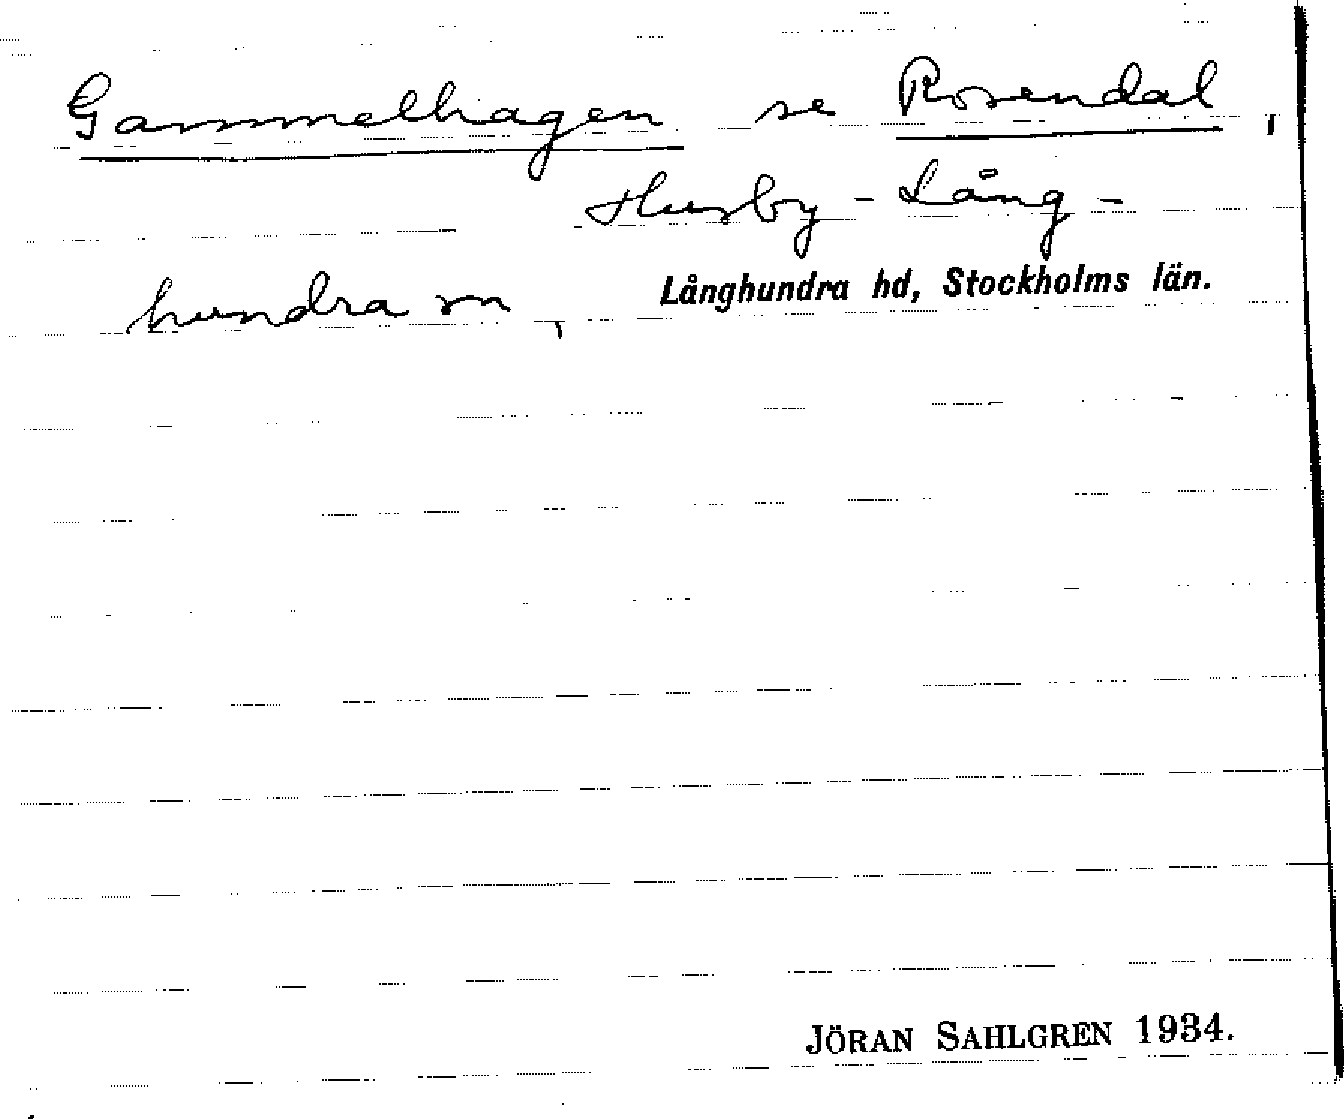 Gammelhagen se Rosendal,
Husby-Lång-
hundra sn, Långhundra hd, Stockholms län.
JÖRAN SAHLGREN 1934.